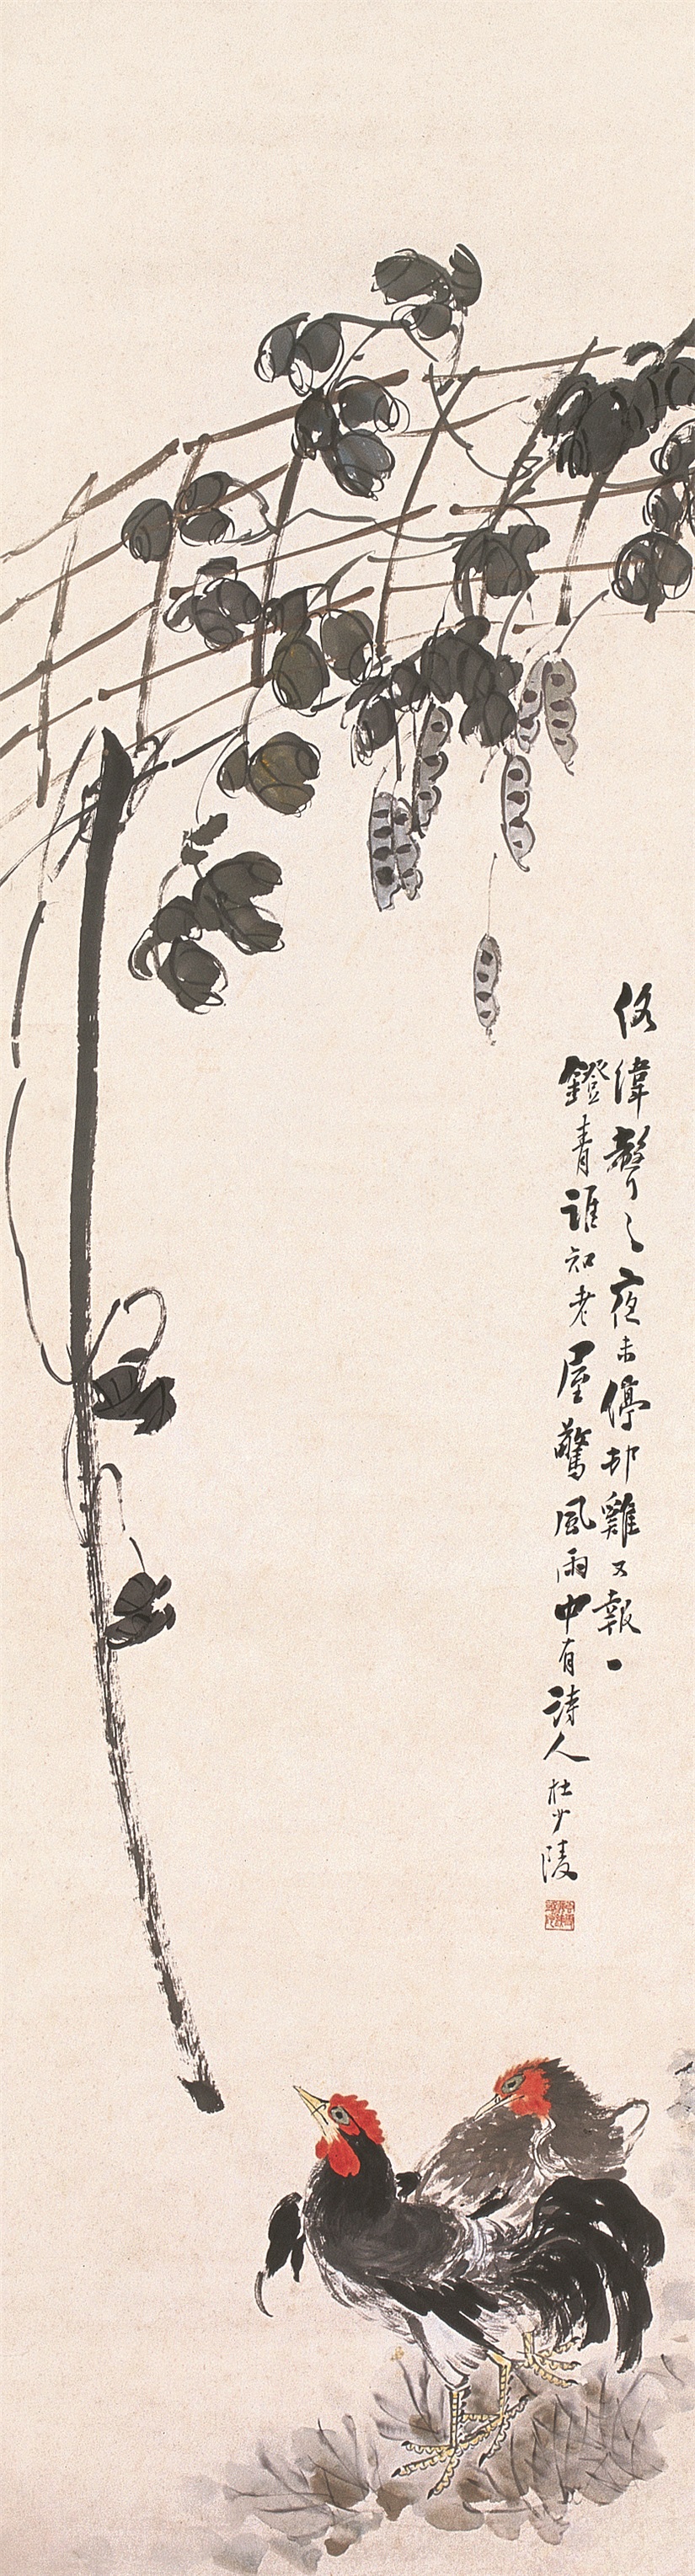 佫緯聲〻夜未停却雞又報一
鐙青誰知老屋驚風雨中有詩人杜少陵